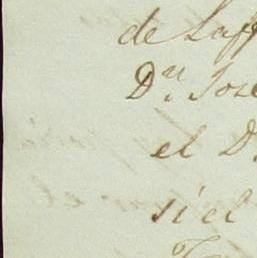 de Laff
Dn. Jose
el D
si el